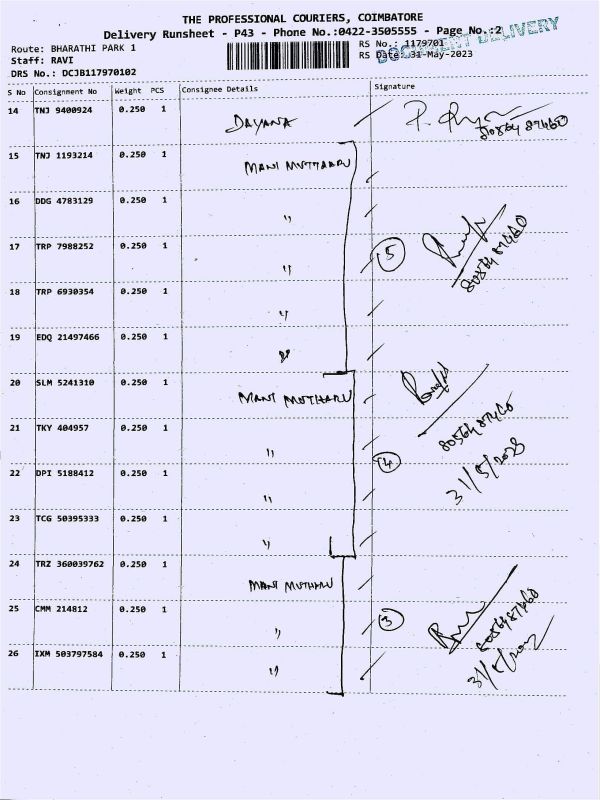 THE PROFESSIONAL COURIERS, COIMBATORE
Delivery Runsheet - P43 - Phone No.:0422-3505555 - Page No.:2
Route: BHARATHI PARK 1
RS No.: 1179701
DOCUMENT DELIVERY
Staff: RAVI
RS Date: 31-May-2023
DRS No.: DCJB117970102
S No Consignment No Weight PCS Consignee Details Signature
14 TNJ 9400924 0.250 1 DAYANA
15 TNJ 1193214 0.250 1 MANI MUTHARU
16 DDG 4783129 0.250 1 "
17 TRP 7988252 0.250 1 " 5
80564 87460
18 TRP 6930354 0.250 1 "
19 EDQ 21497466 0.250 1 "
20 SLM 5241310 0.250 1 MANI MUTHARU
21 TKY 404957 0.250 1 " 80564 87460
22 DPI 5188412 0.250 1 " 4 31/5/2023
23 TCG 50395333 0.250 1 "
24 TRZ 360039762 0.250 1 MANI MUTHARU
25 CMM 214812 0.250 1 " 3 8056487460
26 IXM 503797584 0.250 1 "